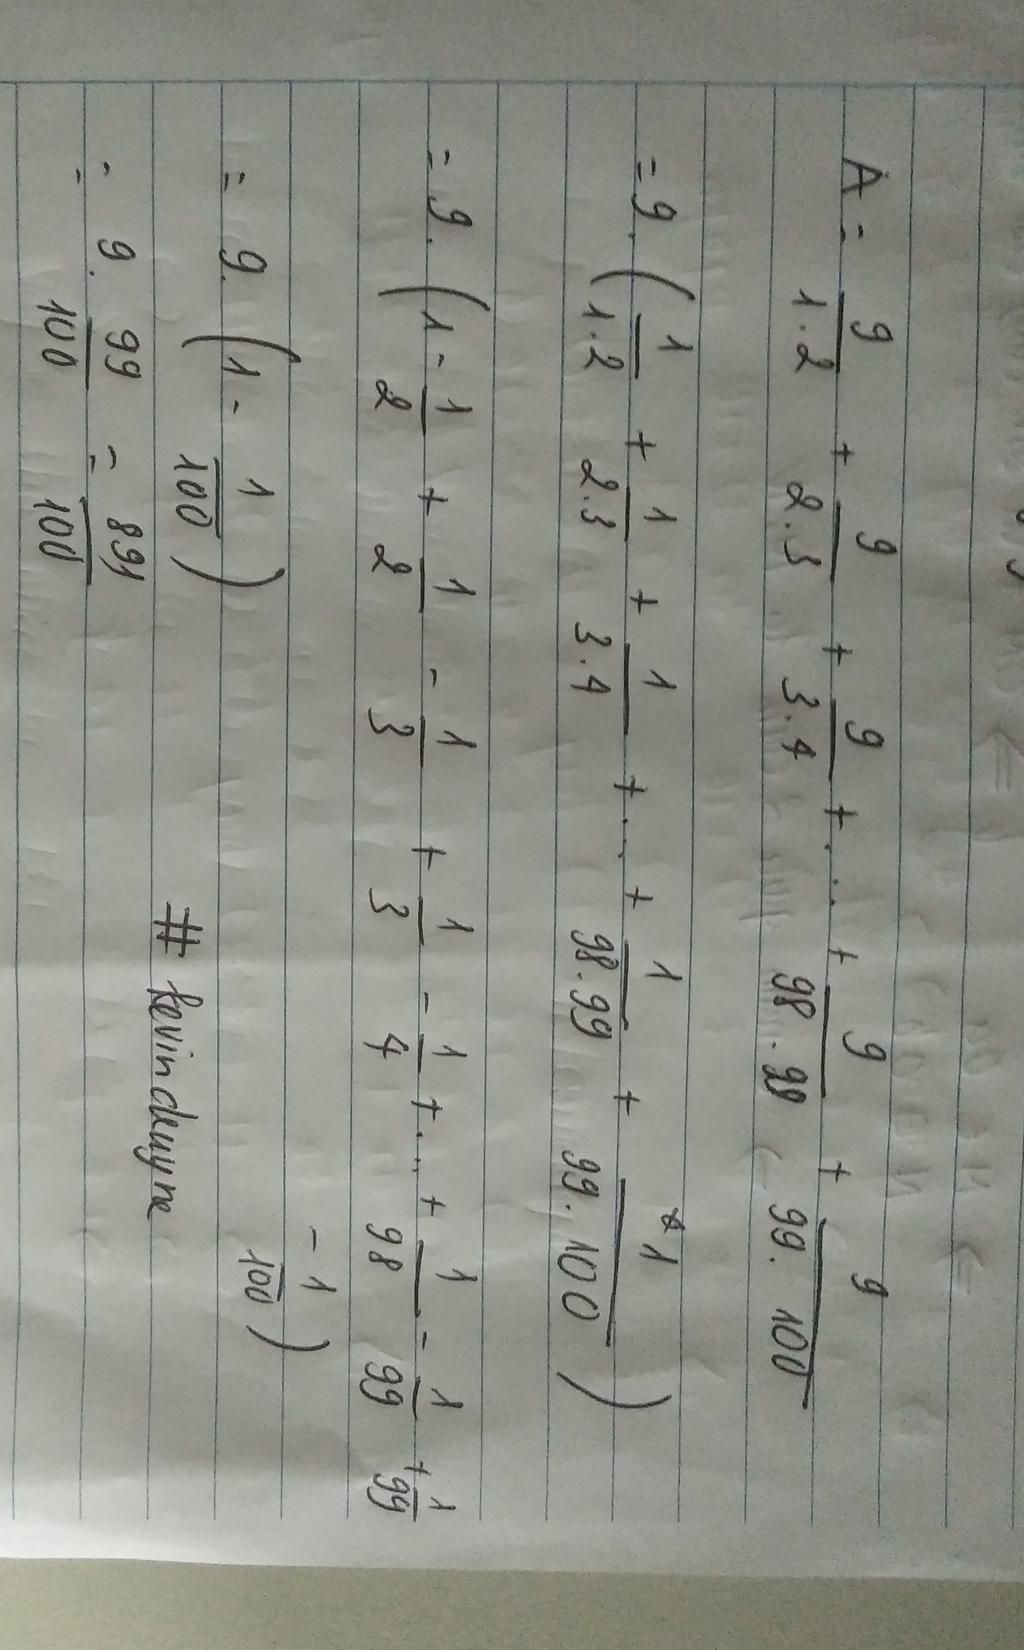 A = 9/1.2 + 9/2.3 + 9/3.4 + ... + 9/98.99 + 9/99.100
= 9.(1/1.2 + 1/2.3 + 1/3.4 + ... + 1/98.99 + 1/99.100)
= 9.(1 - 1/2 + 1/2 - 1/3 + 1/3 - 1/4 + ... + 1/98 - 1/99 + 1/99
- 1/100)
= 9.(1 - 1/100)
= 9. 99/100 = 891/100